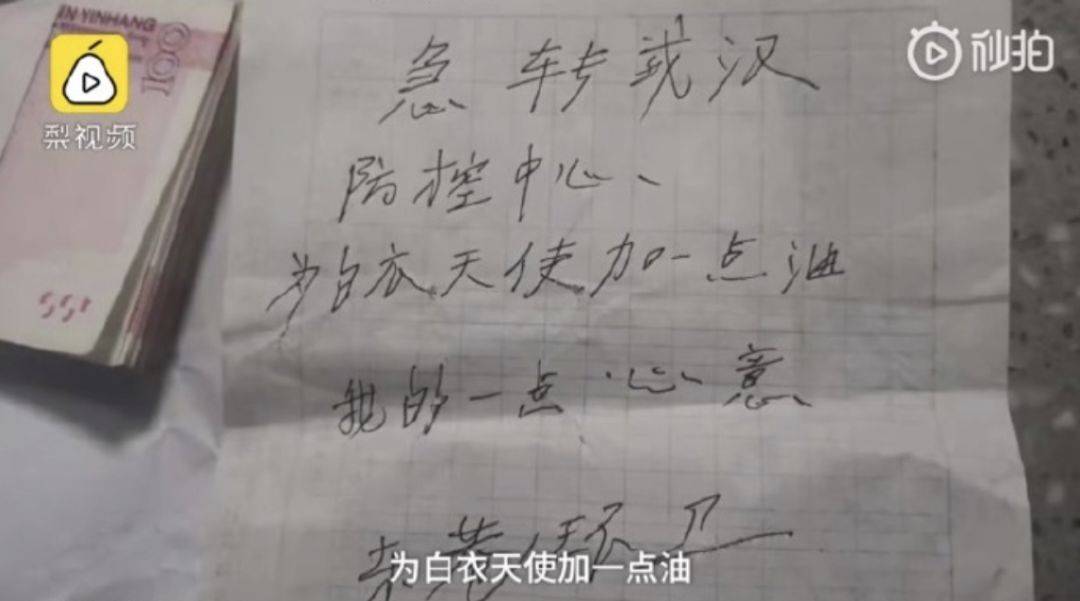 IN YINHANG
100
梨视频
秒拍
急转武汉
防控中心、
为白衣天使加一点油
我的一点心意
东港环卫
为白衣天使加一点油